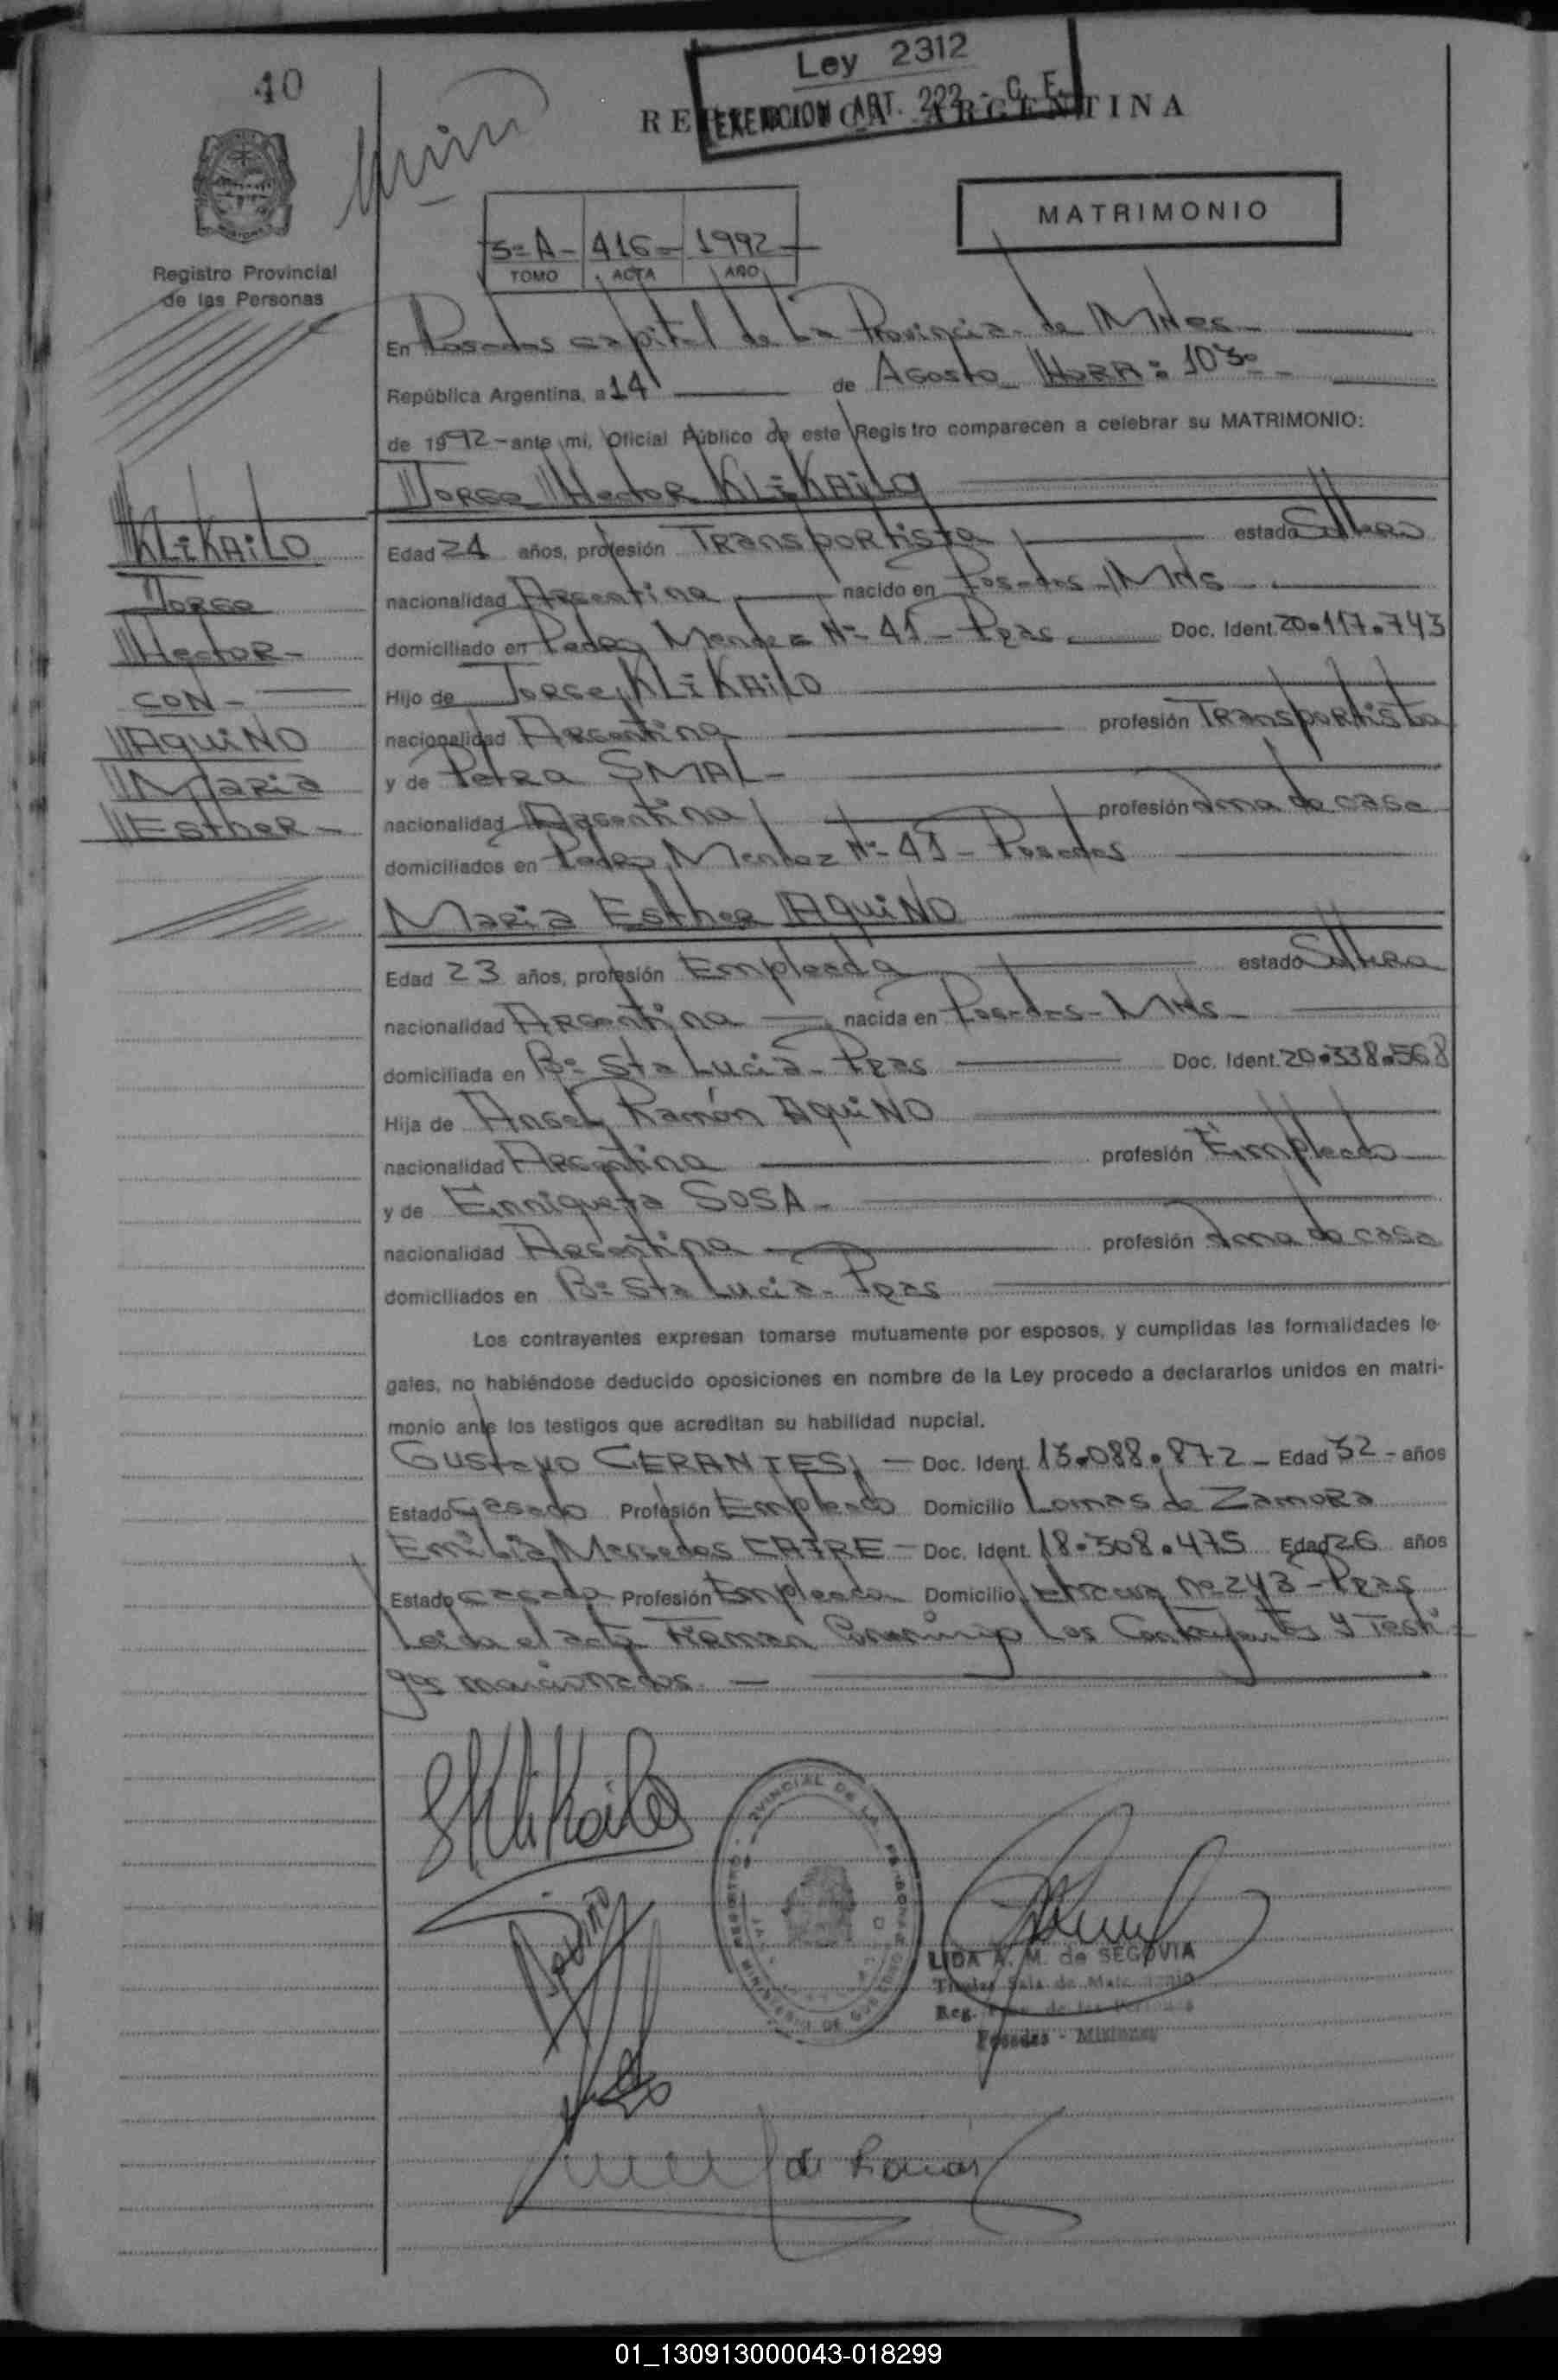 40
Ley 2312
EXENCION ART. 222 - C. F.
REPUBLICA ARGENTINA
MATRIMONIO
5=A- 416- 1992-
TOMO ACTA AÑO
Registro Provincial
de las Personas
En Posadas capital de La Provincia de MNes
República Argentina, a 14 de Agosto HORA: 10 30
de 1992 - ante mi, Oficial Público de este Registro comparecen a celebrar su MATRIMONIO:
Jorge Hector KLiKAiLO
KLiKAiLO
Jorge
Hector-
CON-
AQuiNO
Maria
EstheR-
Edad 24 años, profesión Transportista estado Soltero
nacionalidad Argentina nacido en Posadas-MNs
domiciliado en Pedro Mendez Nº 41 - Pdas Doc. Ident. 20.117.743
Hijo de Jorge KLiKAiLO
nacionalidad Argentina profesión Transportista
y de Petra SMAL-
nacionalidad Argentina profesión Ama de casa
domiciliados en Pedro Mendez Nº 41 - Posadas
Maria Esther AQuiNO
Edad 23 años, profesión Empleada estado Soltera
nacionalidad Argentina nacida en Posadas-MNs-
domiciliada en Bº Sta Lucia- Pdas Doc. Ident. 20.338.568
Hija de Angel Ramón AQuiNO
nacionalidad Argentina profesión Empleado
y de Enriqueta SOSA-
nacionalidad Argentina profesión Ama de casa
domiciliados en Bº Sta Lucia- Pdas
Los contrayentes expresan tomarse mutuamente por esposos, y cumplidas las formalidades le-
gales, no habiéndose deducido oposiciones en nombre de la Ley procedo a declararlos unidos en matri-
monio ante los testigos que acreditan su habilidad nupcial.
Gustavo CERANTES - Doc. Ident. 13.088.872 - Edad 32 - años
Estado Casado Profesión Empleado Domicilio Lomas de Zamora
Emilia Mercedes - Doc. Ident. 18.308.475 Edad 26 años
Estado casada Profesión Empleada Domicilio Nº 243 - Pdas
Leida el acta Firman Conmigo Los Contrayentes y Testi-
gos mencionados.
LIDA A. M. de SEGOVIA
Titular Sala de Matrimonio
Reg. Prov. de las Personas
Posadas - Misiones
01_130913000043-018299